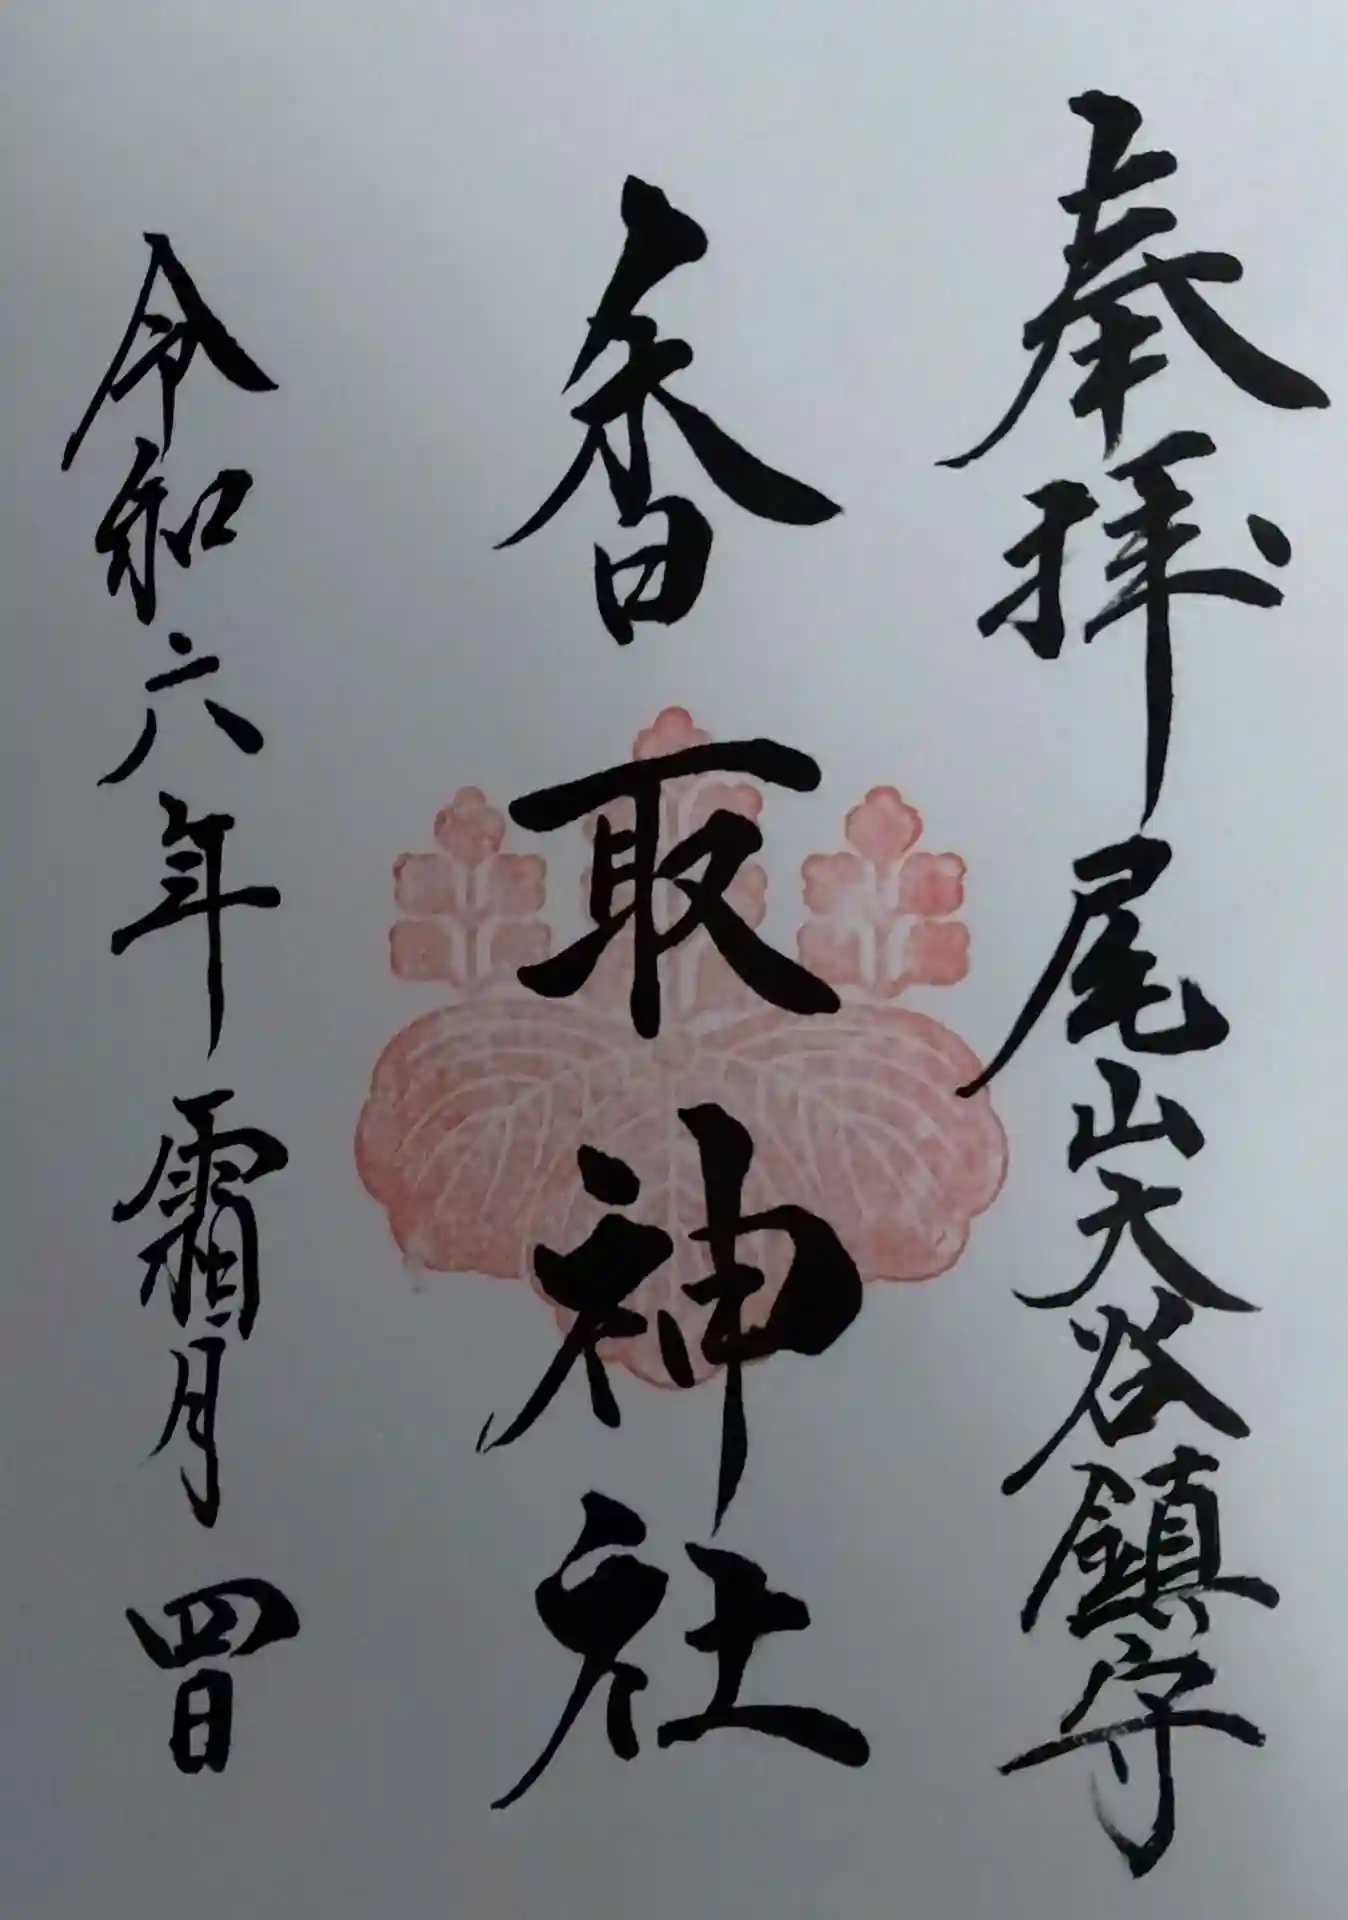 奉拝 尾山大谷鎮守
香取神社
令和六年霜月四日